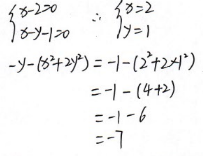 {x-2=0 x-y-1=0 ∴ {x=2 y=1
-y-(x²+2y²)=-1-(2²+2×1²)
=-1-(4+2)
=-1-6
=-7